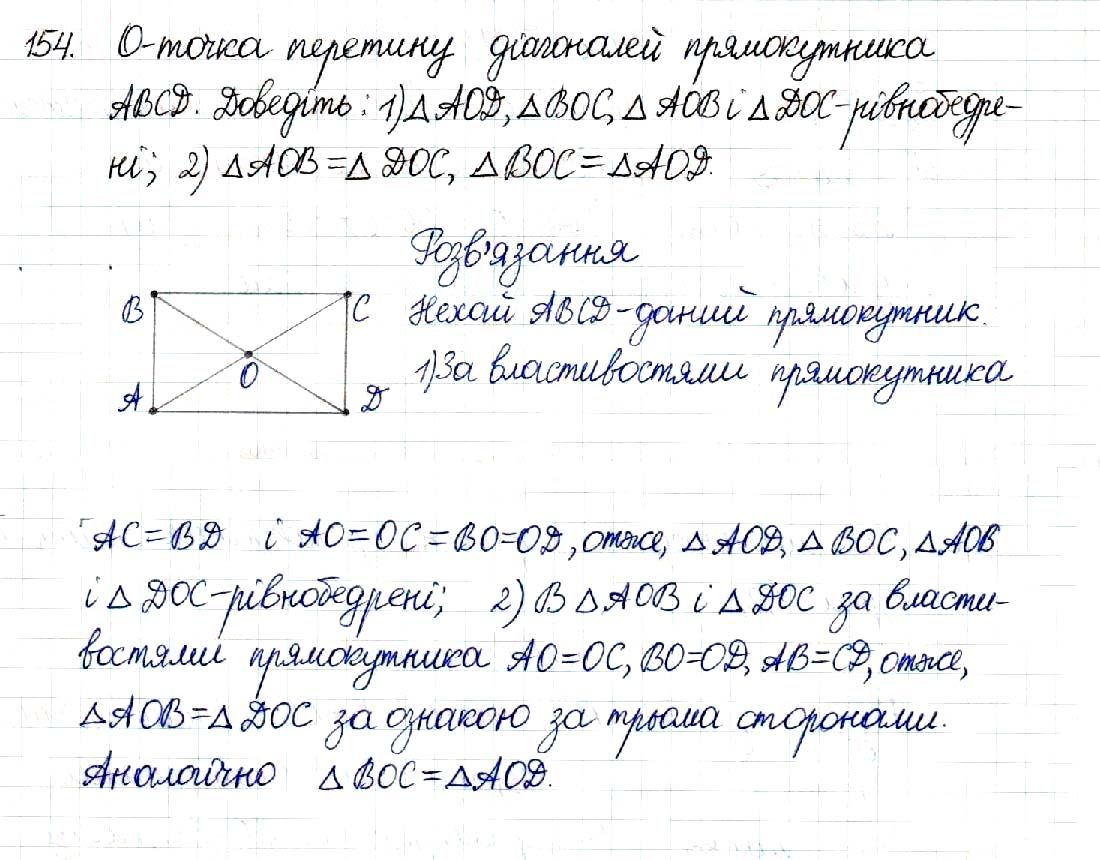 154. О-точка перетину діагоналей прямокутника
ABCD. Доведіть: 1) △ AOD, △ BOC, △ AOB і △ DOC-рівнобедре-
ні; 2) △ AOB = △ DOC, △ BOC = △ AOD.
Розв'язання
B
C
Нехай ABCD-даний прямокутник.
O
1) За властивостями прямокутника
A
D
AC = BD і AO = OC = BO = OD, отже, △ AOD, △ BOC, △ AOB
і △ DOC-рівнобедрені; 2) В △ AOB і △ DOC за власти-
востями прямокутника AO = OC, BO = OD, AB = CD, отже,
△ AOB = △ DOC за ознакою за трьома сторонами.
Аналогічно △ BOC = △ AOD.